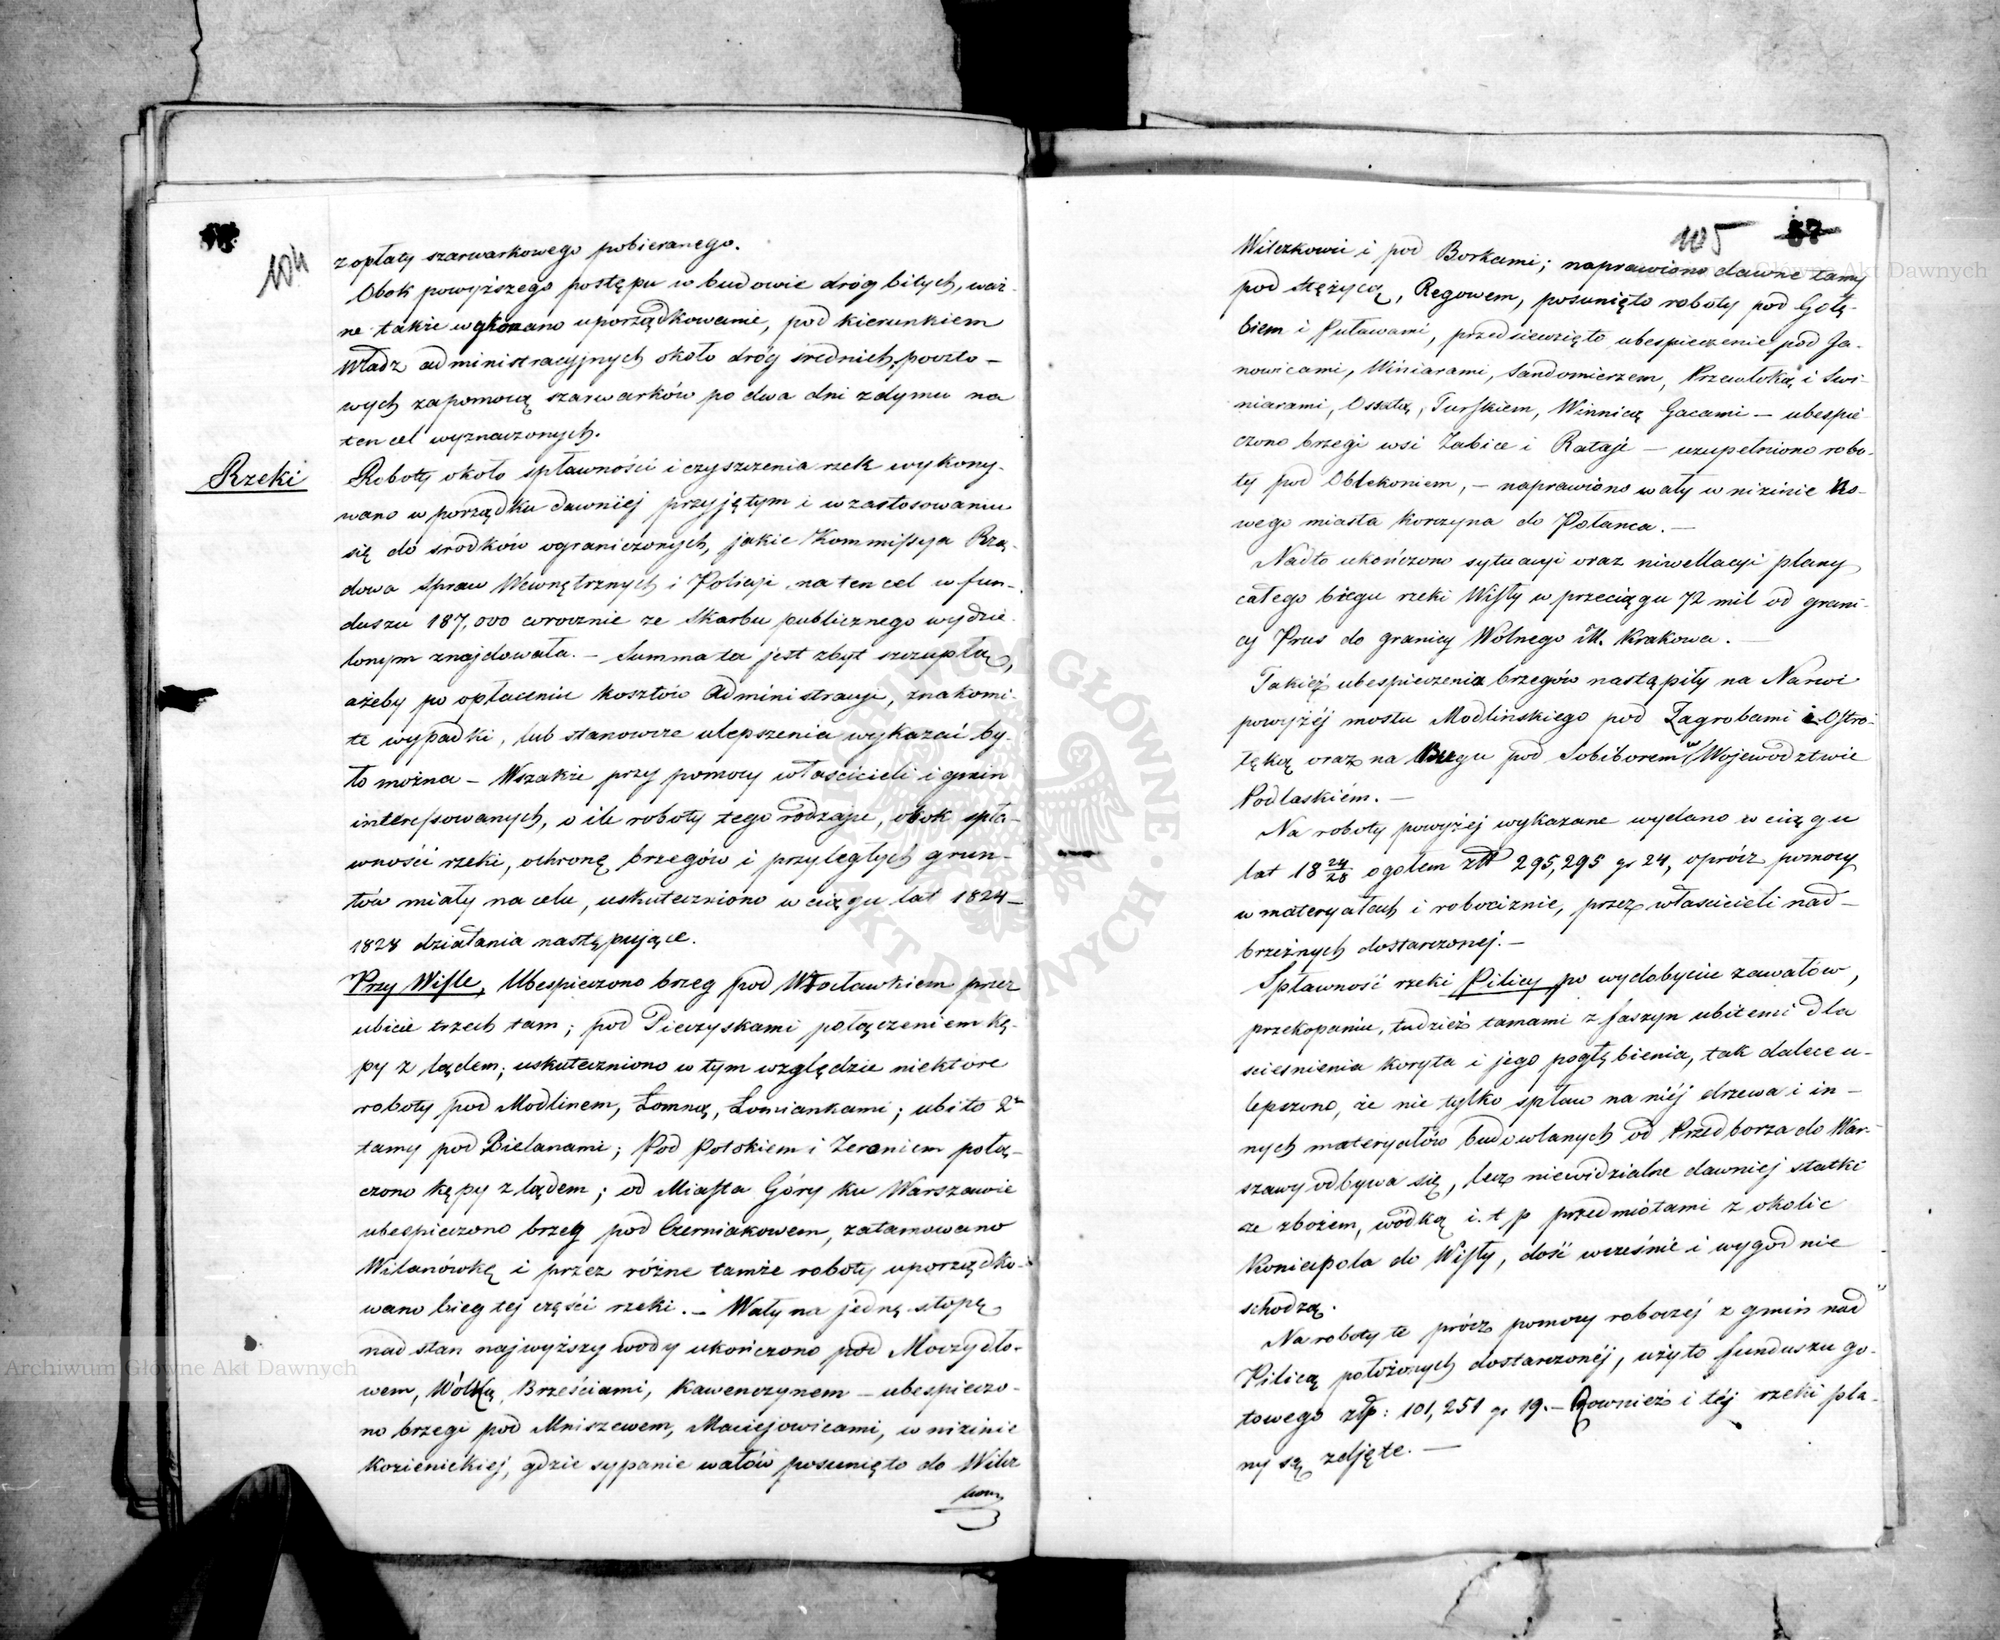 104
z opłaty szarwarkowego pobieranego.
Obok powyższego postępu w budowie dróg bitych, waż-
ne także wykonano uporządkowanie, pod kierunkiem
Władz administracyjnych około dróg średnich, poczto-
wych za pomocą szarwarków po dwa dni z dymu na
ten cel wyznaczonych.
Rzeki
Roboty około spławności i czyszczenia rzek wykony-
wano w porządku dawniej przyjętym i w zastosowaniu
się do srodków ograniczonych, jakie Kommissya Rzą-
dowa Spraw Wewnętrznych i Policyi na ten cel w fun-
duszu 187,000 corocznie ze Skarbu publicznego wydzie-
lonym znajdowała. – Summa ta jest zbyt szczupłą,
ażeby po opłaceniu kosztów Administracyi, znakomi-
te wypadki, lub stanowcze ulepszenia wykazać by-
ło można – Wszakże przy pomocy właścicieli i gmin
interessowanych, o ile roboty tego rodzaju, obok spła-
wności rzeki, ochronę brzegów i przyległych grun-
tów miały na celu, uskuteczniono w ciągu lat 1824–
1828 działania następujące.
Przy Wisle, Ubespieczono brzeg pod Włocławkiem przez
ubicie trzech tam; pod Pieczyskami połączeniem Kę-
py z lądem; uskuteczniono w tym względzie niektóre
roboty pod Modlinem, Łomną, Łomiankami; ubito 2ie
tamy pod Bielanami; Pod Polskiem i Zeraniem połą-
czono kępy z lądem; od Miasta Góry ku Warszawie
ubespieczono brzeg pod Czerniakowem, zatamowano
Wilanówkę i przez różne tamże roboty uporządko-
wano bieg tej części rzeki. – Wały na jedną stopę
nad stan najwyższy wody ukończono pod Moczydło-
wem, Wólką, Brześciami, Kawenczynem – ubespieczo-
no brzegi pod Mniszewem, Maciejowicami, w nizinie
Kozienickiéj, gdzie sypanie wałów posunięto do Wilcz
kow
105 57
Wilczkowic i pod Borkami; naprawiono dawne tamy
pod Stężycą, Regowem, posunięto roboty pod Gołę-
biem i Puławami, przedsięwzięto ubespieczenie pod Ja-
nowicami, Winiarami, Sandomierzem, Przewłoką i Swi-
niarami, Ossalą, Turskiem, Winnicą Gacami – ubespie-
czono brzegi wsi Zabice i Rataje – uzupełniono robo-
ty pod Oblekoniem, – naprawiono wały w nizinie No-
wego miasta Korczyna do Połanca. –
Nadto ukończono sytuacyi oraz niwellacyi plany
całego biegu rzeki Wisły w przeciągu 72 mil od grani-
cy Prus do granicy Wolnego M. Krakowa. –
Takież ubespieczenia brzegów nastąpiły na Narwi
powyżéj mostu Modlinskiego pod Zagrobami i Ostro-
łęką oraz na Bugu pod Sobiborem w Województwie
Podlaskiém. –
Na roboty powyżéj wykazane wydano w ciągu
lat 18 24/28 ogołem złt 295,295 gr 24, oprócz pomocy
w materyałach i robociznie, przez właścicieli nad-
brzeżnych dostarczonej. –
Spławność rzeki Pilicy po wydobyciu zawałów,
przekopaniu, tudzież tamami z faszyn ubitemi dla
scieśnienia koryta i jego pogłębienia, tak dalece u-
lepszono, że nie tylko spław na niéj drzewa i in-
nych materyałów budowlanych od Przedborza do War-
szawy odbywa się, lecz niewidzialne dawniej statki
ze zbożem, wódką i.t p przedmiotami z okolic
Koniecpola do Wisły, dość wcześnie i wygodnie
schodzą.
Na roboty te prócz pomocy roboczéj z gmin nad
Pilicą położonych dostarczonéj, użyto funduszu go-
towego złp: 101,251 gr 19. – Rownież i téj rzeki pla-
ny są zdjęte. –
Archiwum Główne Akt Dawnych